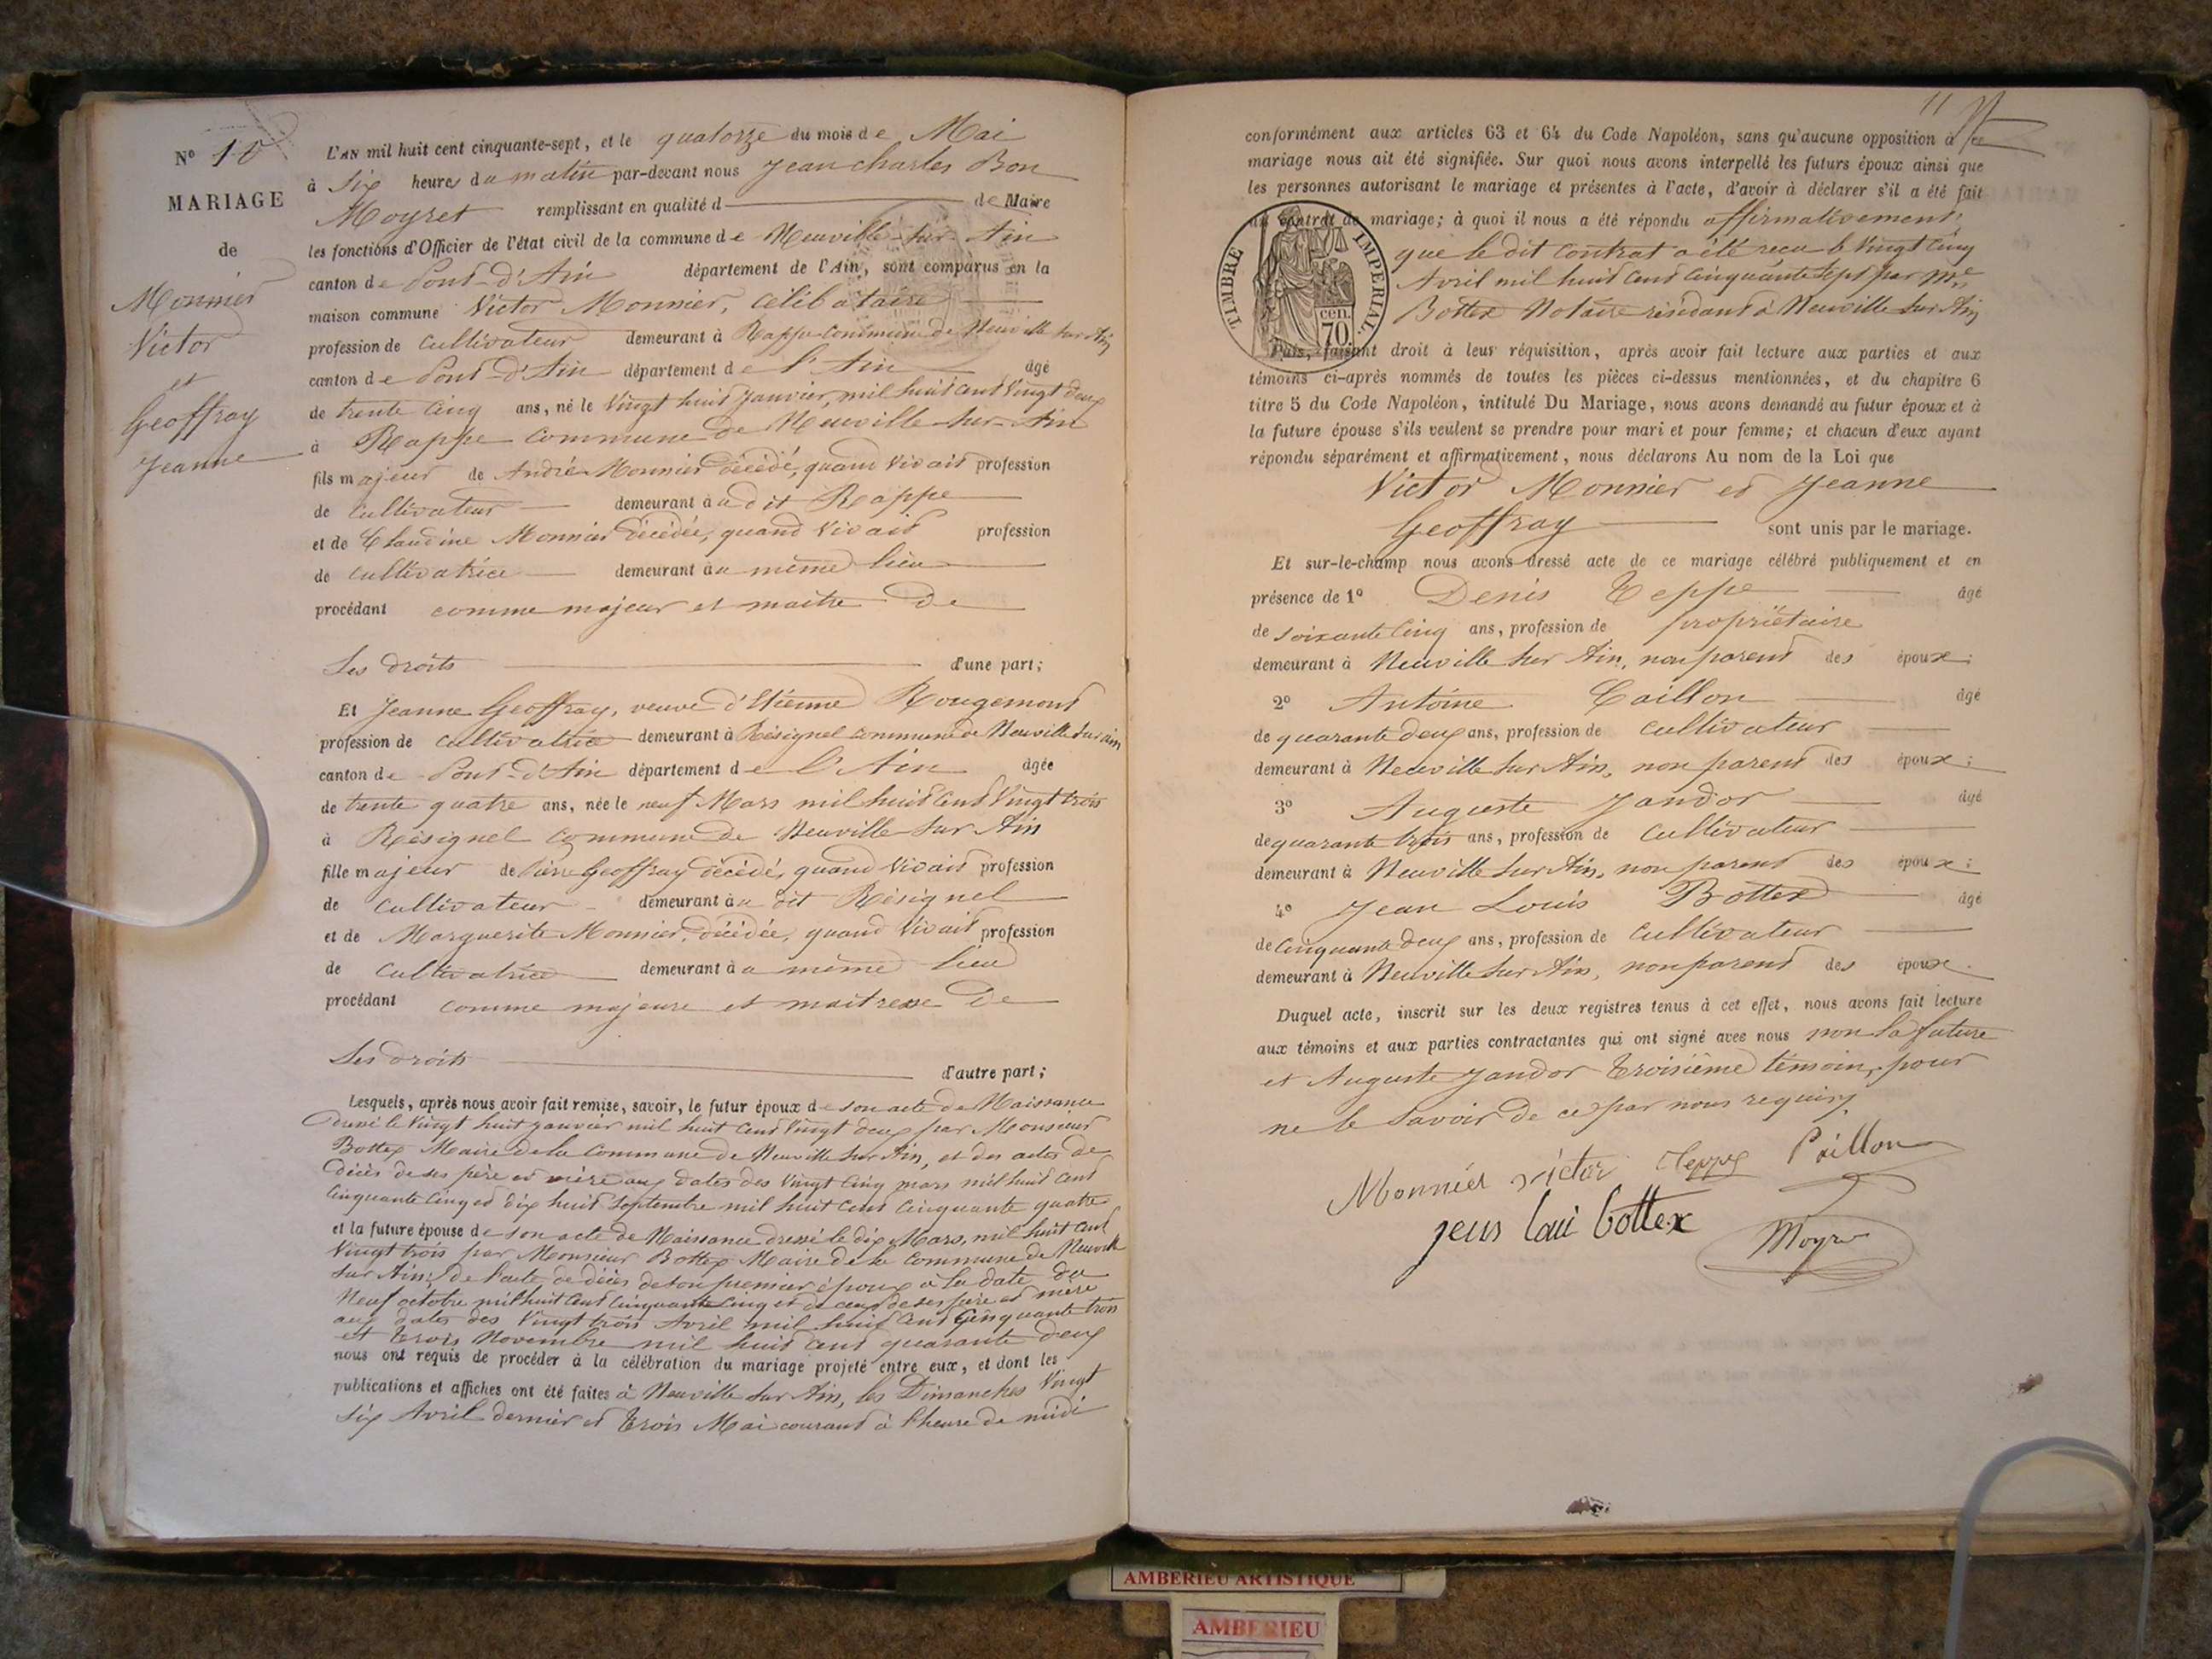 N° 10
MARIAGE
de
Monnier
Victor
et
Geoffray
Jeanne
L'AN mil huit cent cinquante-sept, et le quatorze du mois de Mai
à Six heures du matin par-devant nous Jean Charles Bon
Moyret remplissant en qualité d de Maire
les fonctions d'Officier de l'état civil de la commune de Neuville sur Ain
canton de Pont-d'Ain département de l'Ain, sont comparus en la
maison commune Victor Monnier, célibataire
profession de Cultivateur demeurant à Rappe commune de Neuville sur Ain
canton de Pont-d'Ain département de l'Ain âgé
de trente cinq ans, né le Vingt huit Janvier, mil huit cent Vingt deux
à Rappe commune de Neuville sur Ain
fils majeur de André Monnier décédé, quand vivait profession
de Cultivateur demeurant à u dit Rappe
et de Claudine Monnier décédée, quand vivait profession
de cultivatrice demeurant au même lieu
procédant comme majeur et maître de
Ses droits d'une part;
Et Jeanne Geoffray, veuve d'Etienne Rougemont
profession de cultivatrice demeurant à Résignel commune de Neuville sur ain
canton de Pont-d'Ain département de l'Ain âgée
de trente quatre ans, née le neuf Mars mil huit cent Vingt trois
à Résignel commune de Neuville sur Ain
fille majeur de Pierre Geoffray décédé, quand vivait profession
de Cultivateur demeurant au dit Résignel
et de Marguerite Monnier, décédée, quand vivait profession
de Cultivatrice demeurant au même lieu
procédant comme majeure et maitresse de
Ses droits d'autre part;
Lesquels, après nous avoir fait remise, savoir, le futur époux de son acte de Naissance
dressé le Vingt huit janvier mil huit cent Vingt deux par Monsieur
Bottex Maire de la Commune de Neuville sur Ain, et des actes de
décès de ses père et mère aux dates des Vingt cinq mars mil huit cent
Cinquante cinq et dix huit Septembre mil huit cent cinquante quatre
et la future épouse de son acte de Naissance dressé le dix Mars, mil huit cent
Vingt trois par Monsieur Bottex Maire de la commune de Neuville
sur Ain; de l'acte de décès de son premier époux à la date du
Neuf octobre mil huit cent cinquante cinq et de ceux de ses père et mère
aux dates des Vingt trois Avril mil huit cent Cinquante trois
et trois Novembre mil huit cent quarante deux
nous ont requis de procéder à la célébration du mariage projeté entre eux, et dont les
publications et affiches ont été faites à Neuville sur Ain, les Dimanches Vingt
Six Avril dernier et trois Mai courant à l'heure de midi
11
conformément aux articles 63 et 64 du Code Napoléon, sans qu'aucune opposition à ce
mariage nous ait été signifiée. Sur quoi nous avons interpellé les futurs époux ainsi que
les personnes autorisant le mariage et présentes à l'acte, d'avoir à déclarer s'il a été fait
un contrat de mariage; à quoi il nous a été répondu affirmativement,
que le dit contrat a été reçu le Vingt Cinq
Avril mil huit cent cinquante sept par Me
Bottex Notaire résidant à Neuville sur Ain
TIMBRE IMPERIAL.
cen.
70
Puis, faisant droit à leur réquisition, après avoir fait lecture aux parties et aux
témoins ci-après nommés de toutes les pièces ci-dessus mentionnées, et du chapitre 6
titre 5 du Code Napoléon, intitulé Du Mariage, nous avons demandé au futur époux et à
la future épouse s'ils veulent se prendre pour mari et pour femme; et chacun d'eux ayant
répondu séparément et affirmativement, nous déclarons Au nom de la Loi que
Victor Monnier et Jeanne
Geoffray sont unis par le mariage.
Et sur-le-champ nous avons dressé acte de ce mariage célébré publiquement et en
présence de 1° Denis Teppe âgé
de soixante Cinq ans, profession de propriétaire
demeurant à Neuville sur Ain, non parent des époux;
2° Antoine Caillon âgé
de quarante deux ans, profession de cultivateur
demeurant à Neuville sur Ain, non parent des époux;
3° Auguste Jandor âgé
de quarante trois ans, profession de cultivateur
demeurant à Neuville sur Ain, non parent des époux;
4° Jean Louis Bottex âgé
de cinquante deux ans, profession de cultivateur
demeurant à Neuville sur Ain, non parent des époux.
Duquel acte, inscrit sur les deux registres tenus à cet effet, nous avons fait lecture
aux témoins et aux parties contractantes qui ont signé avec nous non la future
et Auguste Jandor troisième témoin, pour
ne le savoir de ce par nous requis.
Monnier victor Teppe Caillon
jean loui bottex Moyret
AMBERIEU ARTISTIQUE
AMBERIEU